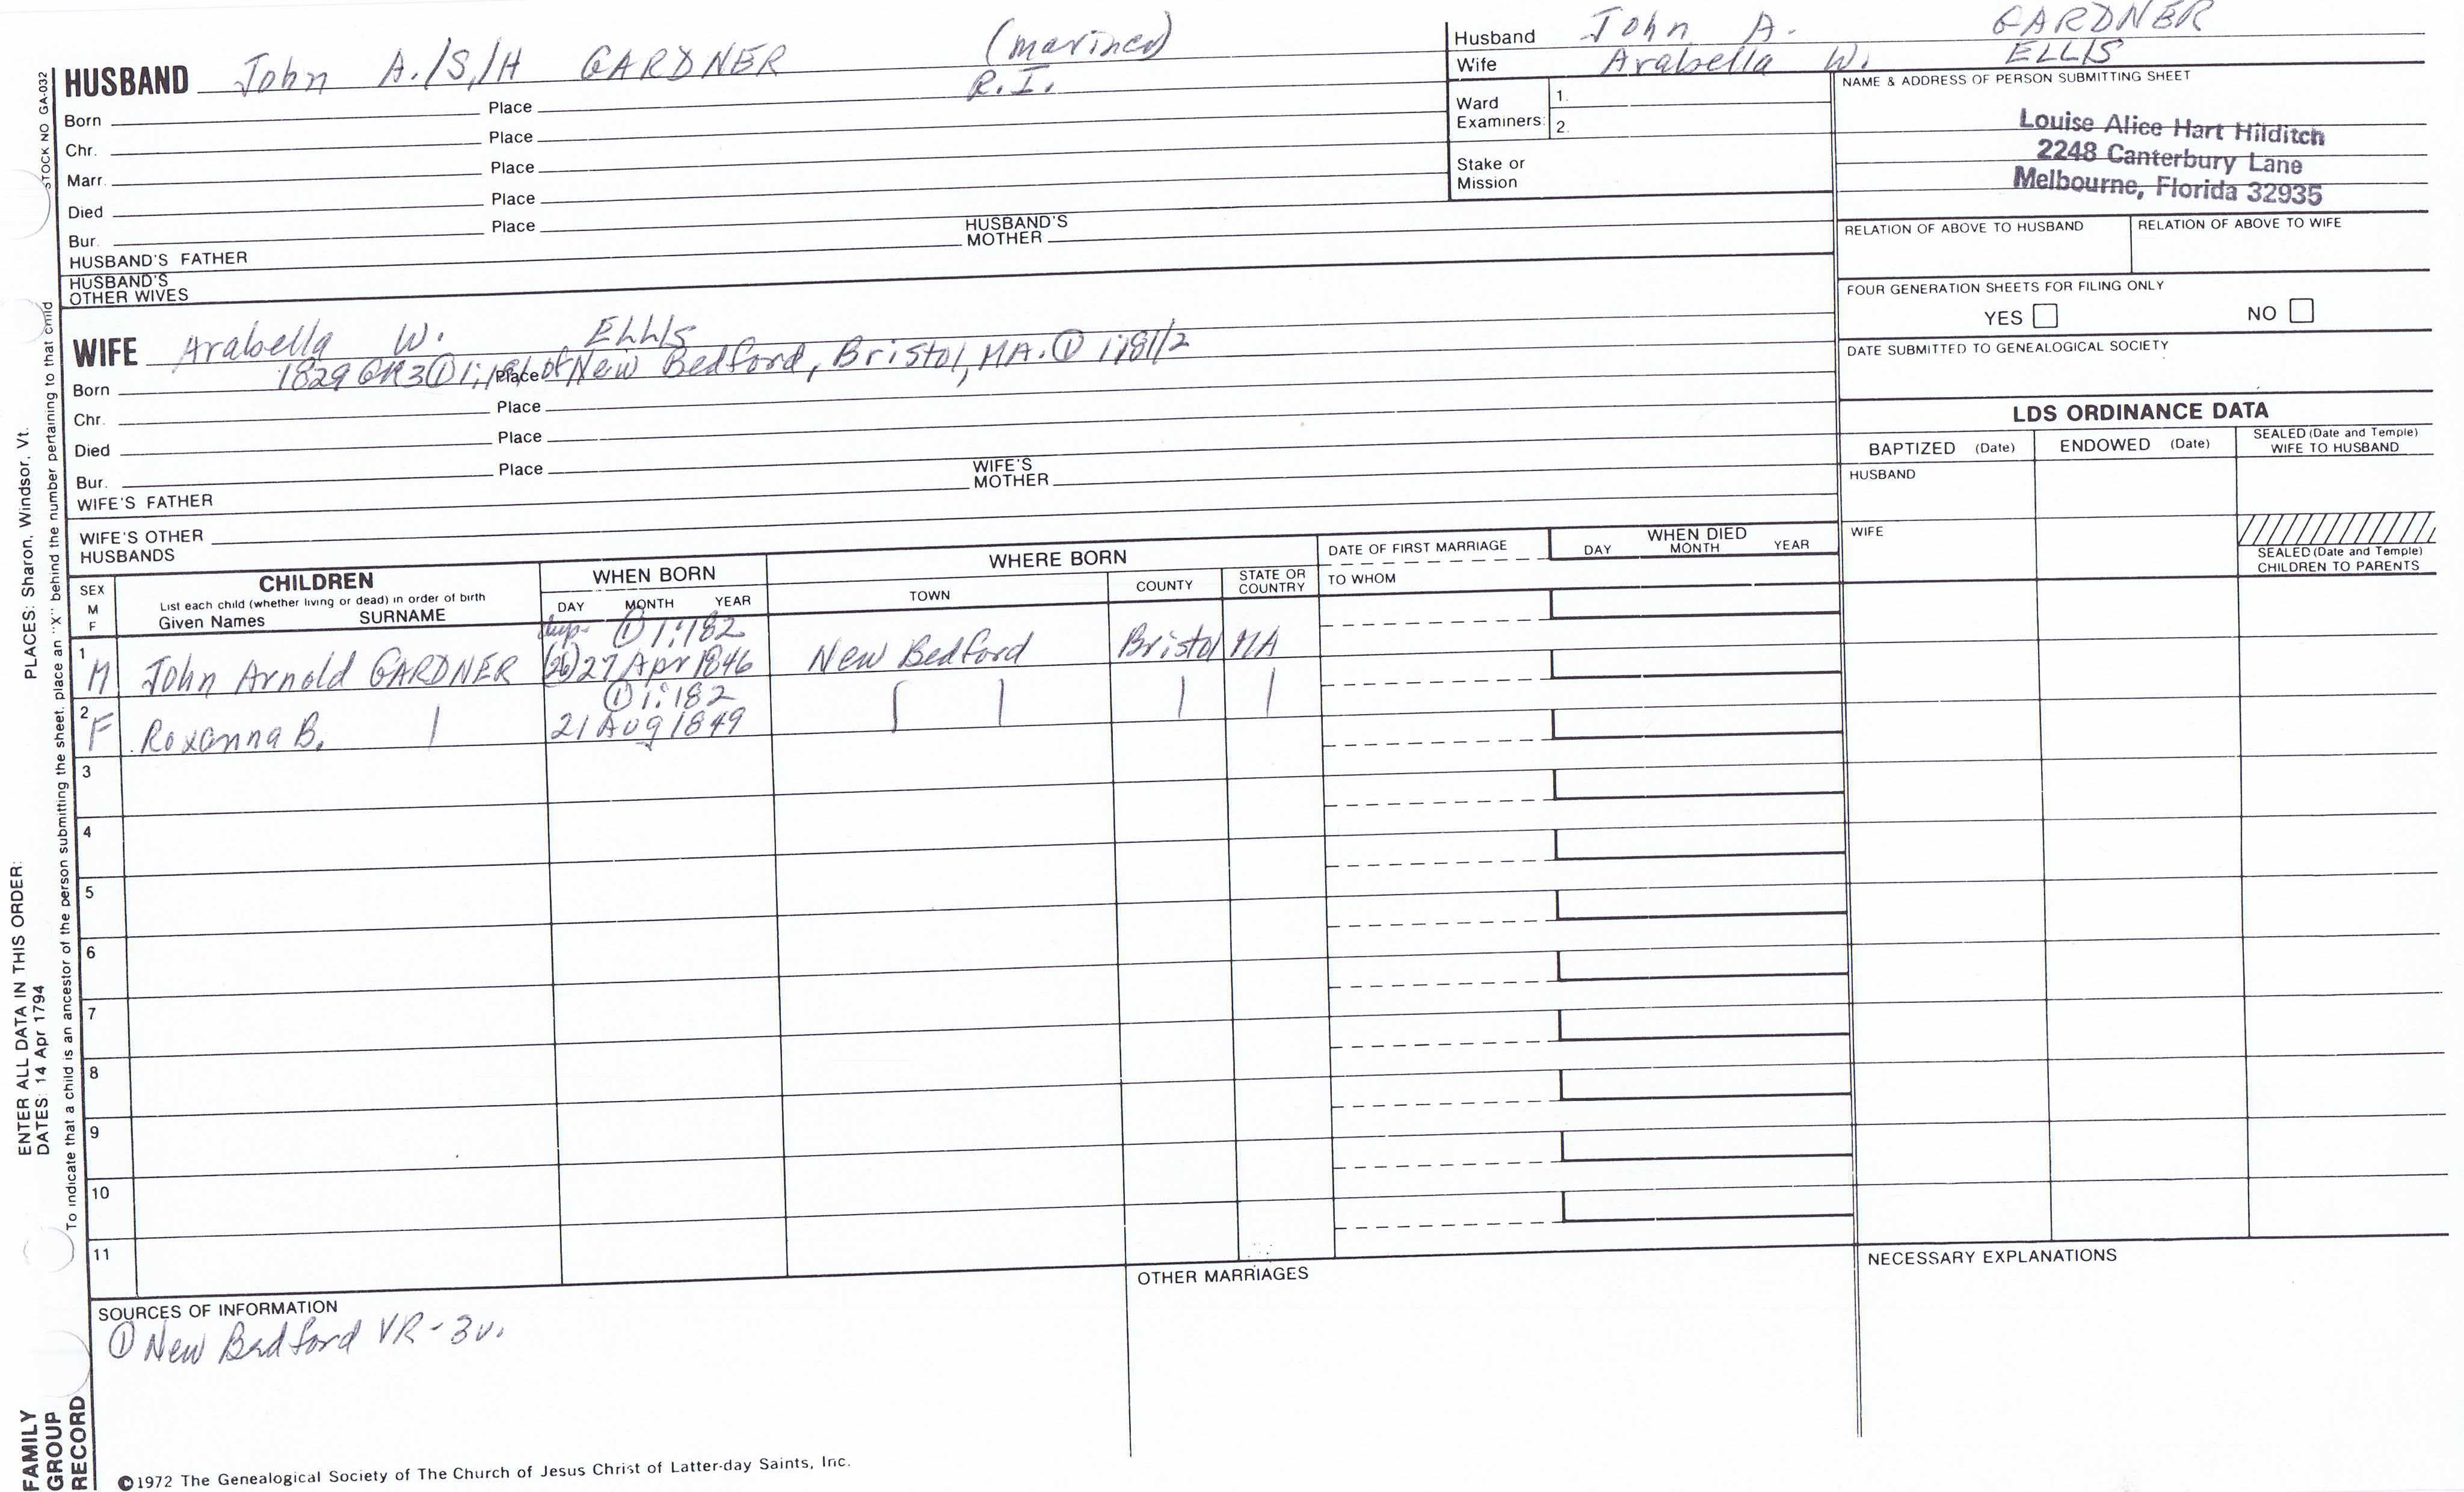 HUSBAND John A./S./H GARDNER (mariner)
R.I.
Born Place
Chr. Place
Marr. Place
Died Place
Bur. Place
HUSBAND'S FATHER HUSBAND'S MOTHER
HUSBAND'S OTHER WIVES
Husband John A. GARDNER
Wife Arabella W. ELLIS
Ward Examiners: 1.
2.
Stake or Mission
NAME & ADDRESS OF PERSON SUBMITTING SHEET
Louise Alice Hart Hilditch
2248 Canterbury Lane
Melbourne, Florida 32935
RELATION OF ABOVE TO HUSBAND RELATION OF ABOVE TO WIFE
FOUR GENERATION SHEETS FOR FILING ONLY
YES NO
DATE SUBMITTED TO GENEALOGICAL SOCIETY
WIFE Arabella W. ELLIS
Born 1829 GR3 ① 1:181 Place of New Bedford, Bristol, MA. ① 1:181/2
Chr. Place
Died Place
Bur. Place
WIFE'S FATHER WIFE'S MOTHER
WIFE'S OTHER HUSBANDS
LDS ORDINANCE DATA
BAPTIZED (Date) ENDOWED (Date) SEALED (Date and Temple) WIFE TO HUSBAND
HUSBAND
WIFE
SEALED (Date and Temple) CHILDREN TO PARENTS
SEX M F
CHILDREN
List each child (whether living or dead) in order of birth
Given Names SURNAME
WHEN BORN
DAY MONTH YEAR
WHERE BORN
TOWN COUNTY STATE OR COUNTRY
DATE OF FIRST MARRIAGE
TO WHOM
WHEN DIED
DAY MONTH YEAR
dup. ① 1:182
1 M John Arnold GARDNER (26) 27 Apr 1846 New Bedford Bristol MA
① 1:182
2 F Roxanna B. 21 Aug 1849
3
4
5
6
7
8
9
10
11
SOURCES OF INFORMATION
① New Bedford VR-3v.
OTHER MARRIAGES
NECESSARY EXPLANATIONS
©1972 The Genealogical Society of The Church of Jesus Christ of Latter-day Saints, Inc.
STOCK NO GA-032
ENTER ALL DATA IN THIS ORDER:
DATES: 14 Apr 1794 PLACES: Sharon, Windsor, Vt.
To indicate that a child is an ancestor of the person submitting the sheet, place an "X" behind the number pertaining to that child
FAMILY
GROUP
RECORD